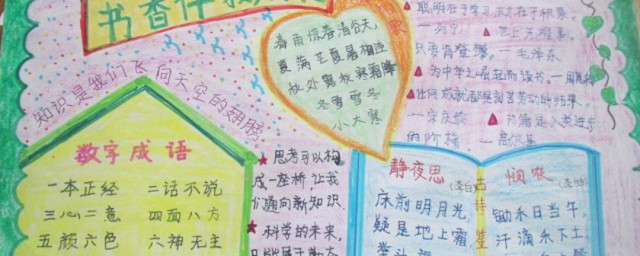 书香伴我
知识是我们飞向天空的翅膀
数字成语
一本正经 二话不说
三心二意 四面八方
五颜六色 六神无主
春雨惊春清谷天,
夏满芒夏暑相连
秋处露秋寒霜降
冬雪雪冬
小大寒
聪明在于学习,天才在于积累。
列宁
只要肯登攀。—毛泽东
为中华之崛起而读书。—周恩来
任何成就都是刻苦劳动的结果。
—宋庆龄 书籍是人类进步
的阶梯 —高尔基
★ 思考可以构
成一座桥,让我
们通向新知识
★ 科学的未来,
只能属于勤
古诗
静夜思 (李白)
床前明月光,
疑是地上霜,
举头
悯农
锄禾日当午,
汗滴禾下土。